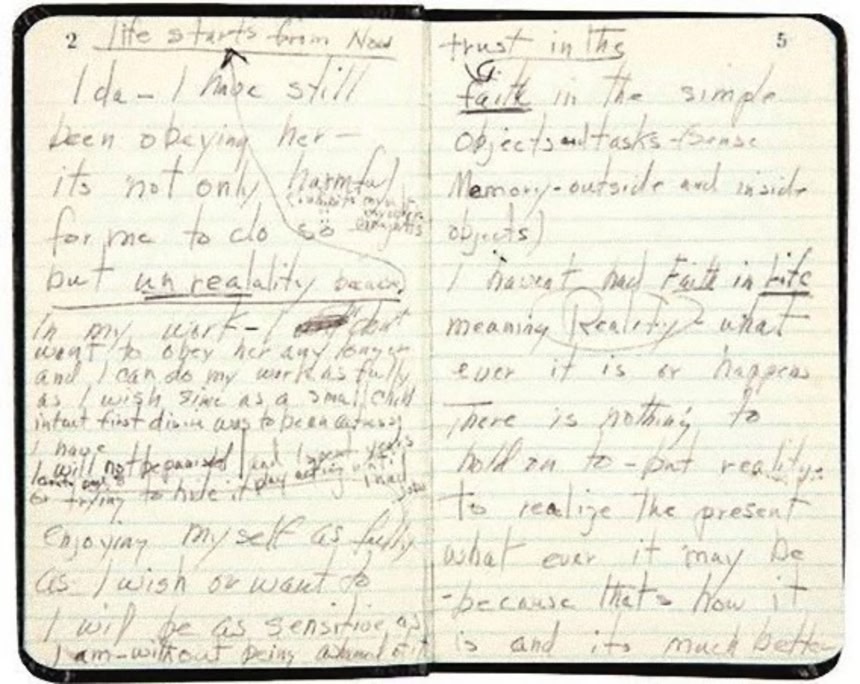 2
life starts from Now
Ida – I have still
been obeying her –
its not only harmful
for me to do so
but unreality because
in my work – I dont
want to obey her any longer
and I can do my work as fully
as I wish since as a small child
intact first desire was to be an actress
I have and I spent years
I will not be punished play acting until I had
or trying to hide it jobs
enjoying myself as fully
as I wish or want to
I will be as sensitive as
I am – without being ashamed of it
5
trust in the
faith in the simple
objects and tasks – (sense
Memory – outside and inside
objects)
I havent had Faith in Life
meaning Reality – what
ever it is or happens
There is nothing to
hold on to – but reality.
to realize the present
what ever it may be
– because thats how it
is and its much better